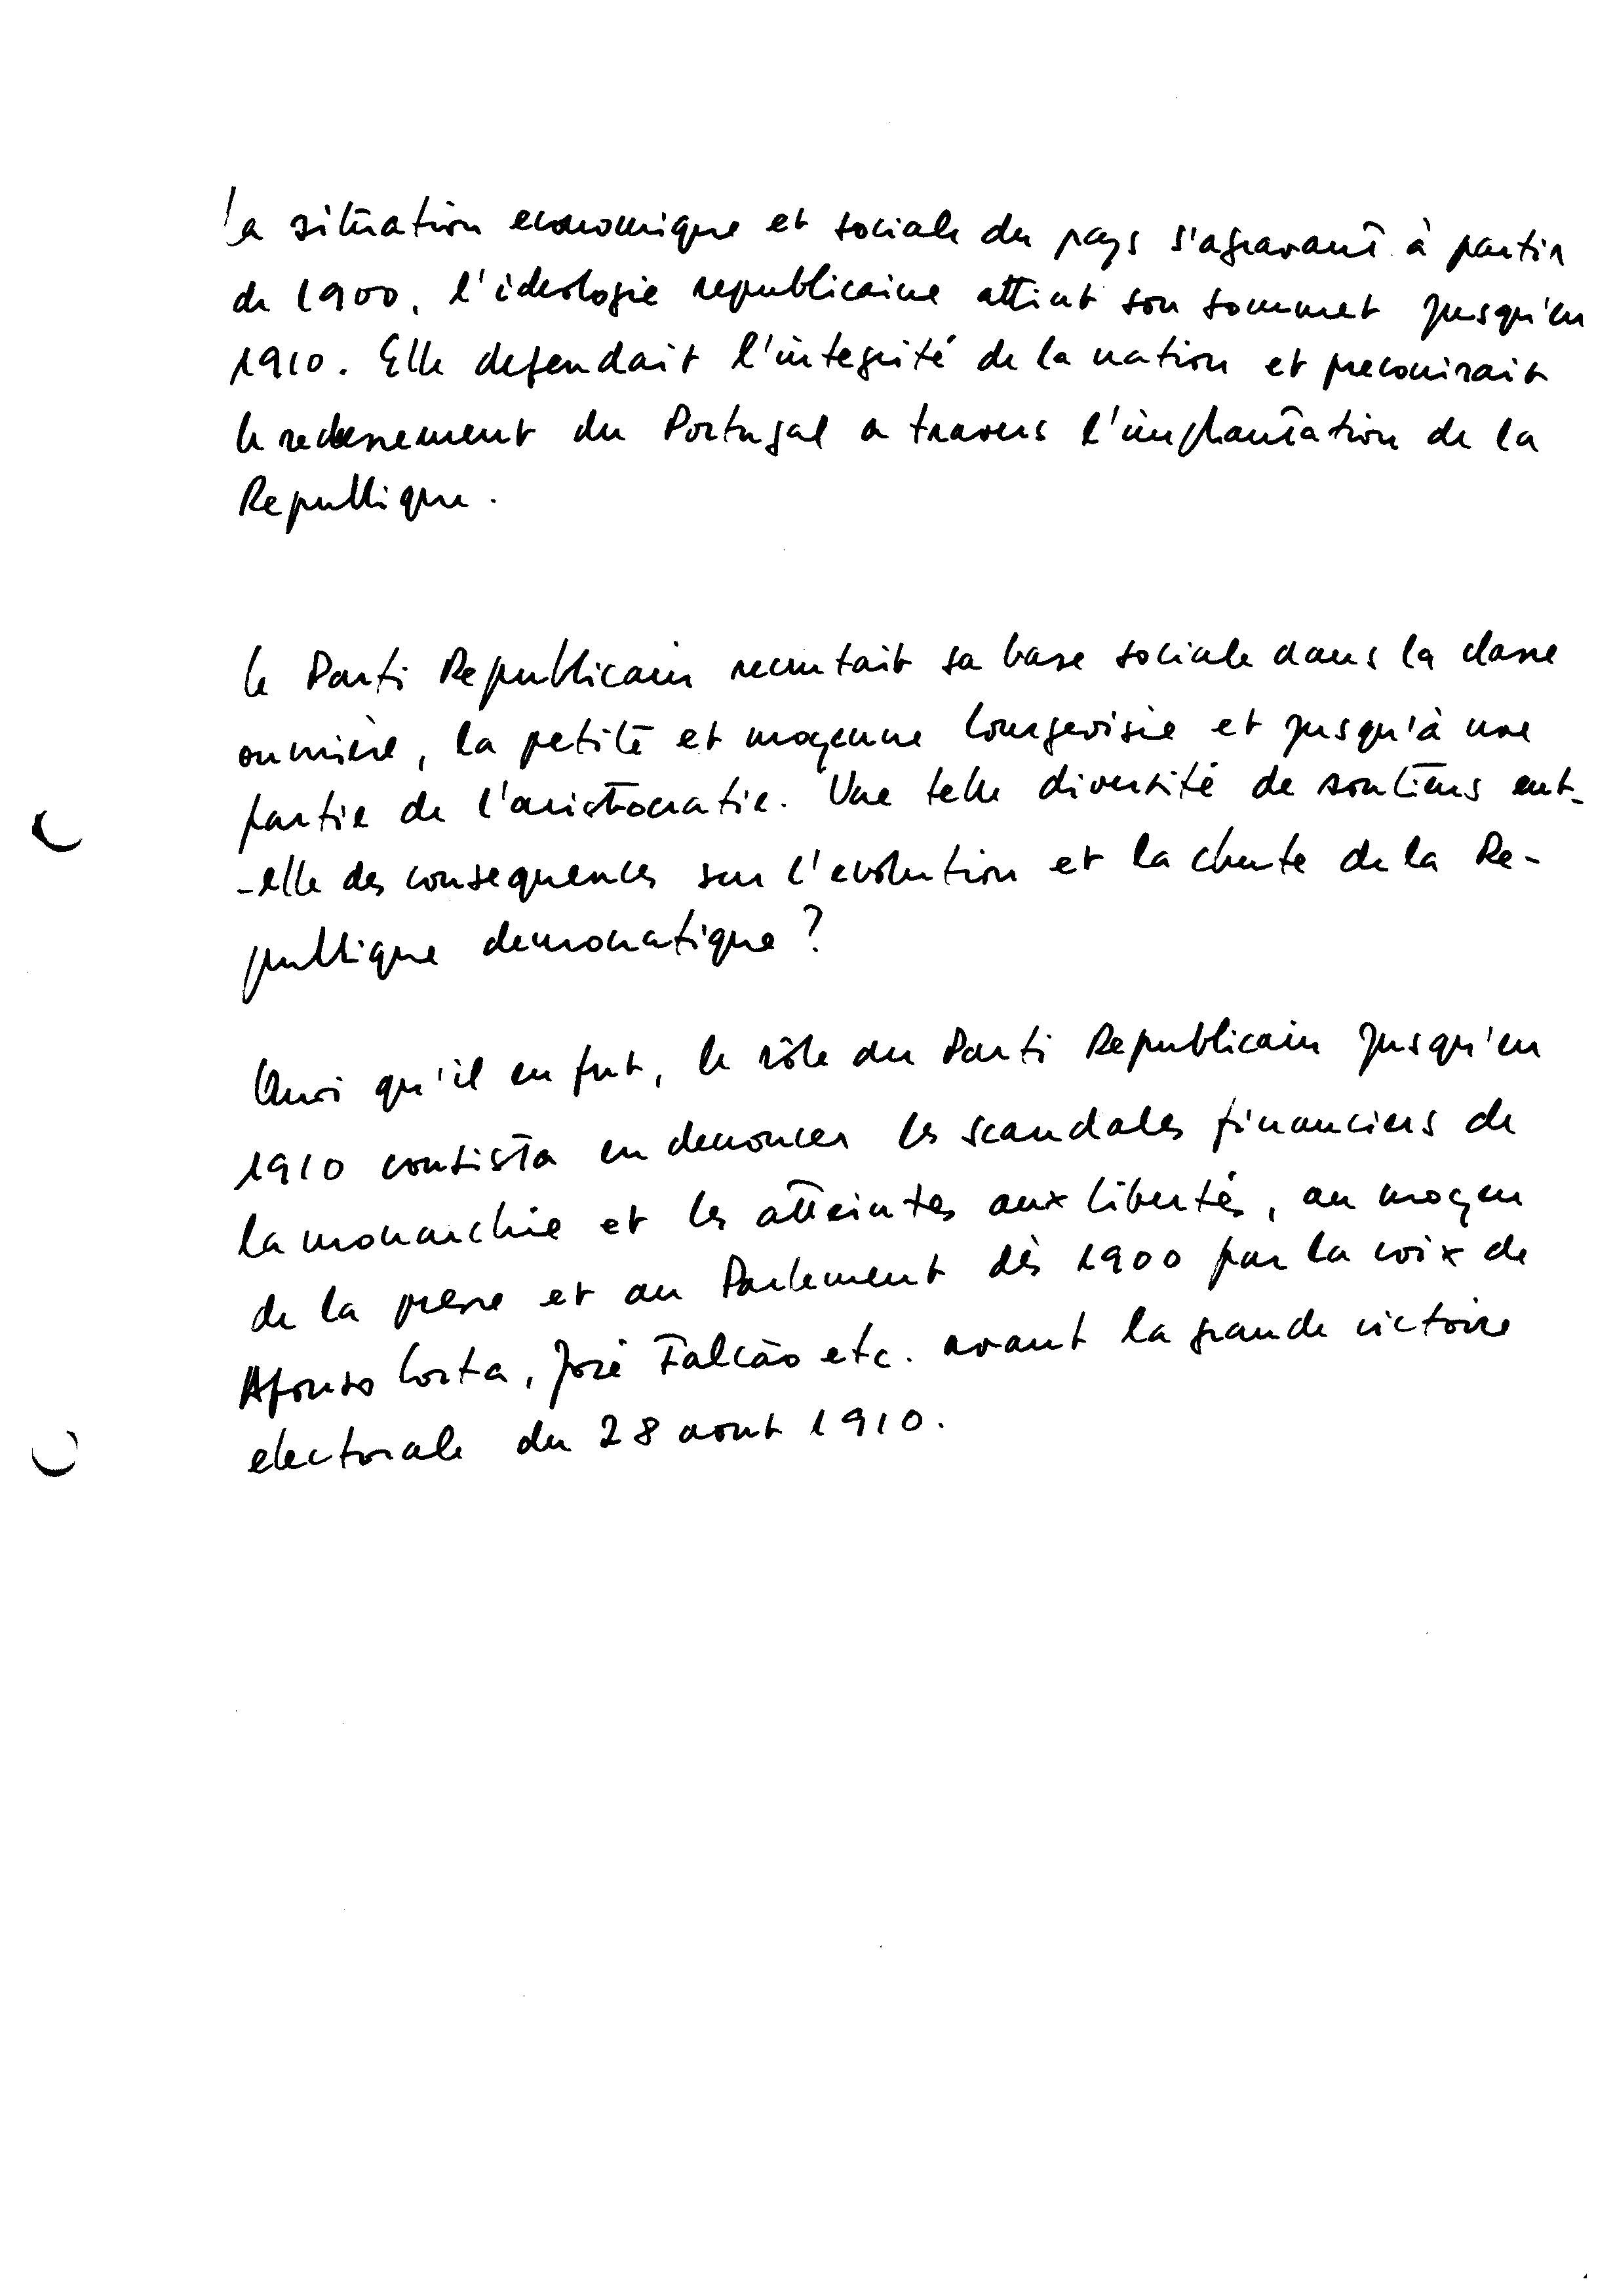 la situation economique et sociale du pays s'agravant à partir
de 1900, l'ideologie republicaine attint son sommet jusqu'en
1910. Elle defendait l'integrité de la nation et preconisait
le redressement du Portugal a travers l'implantation de la
Republique.
le Parti Republicain recrutait sa base sociale dans la classe
ouvrière, la petite et moyenne bourgeoisie et jusqu'à une
partie de l'aristocratie. Une telle diversité de soutiens eut-
-elle des consequences sur l'evolution et la chute de la Re-
publique democratique ?
Quoi qu'il en fut, le rôle du Parti Republicain jusqu'en
1910 consista en denoncer les scandales financiers de
la monarchie et les atteintes aux libertés, au moyen
de la presse et au Parlement dès 1900 par la voix de
Afonso Costa, José Falcão etc. avant la grande victoire
electorale du 28 aout 1910.